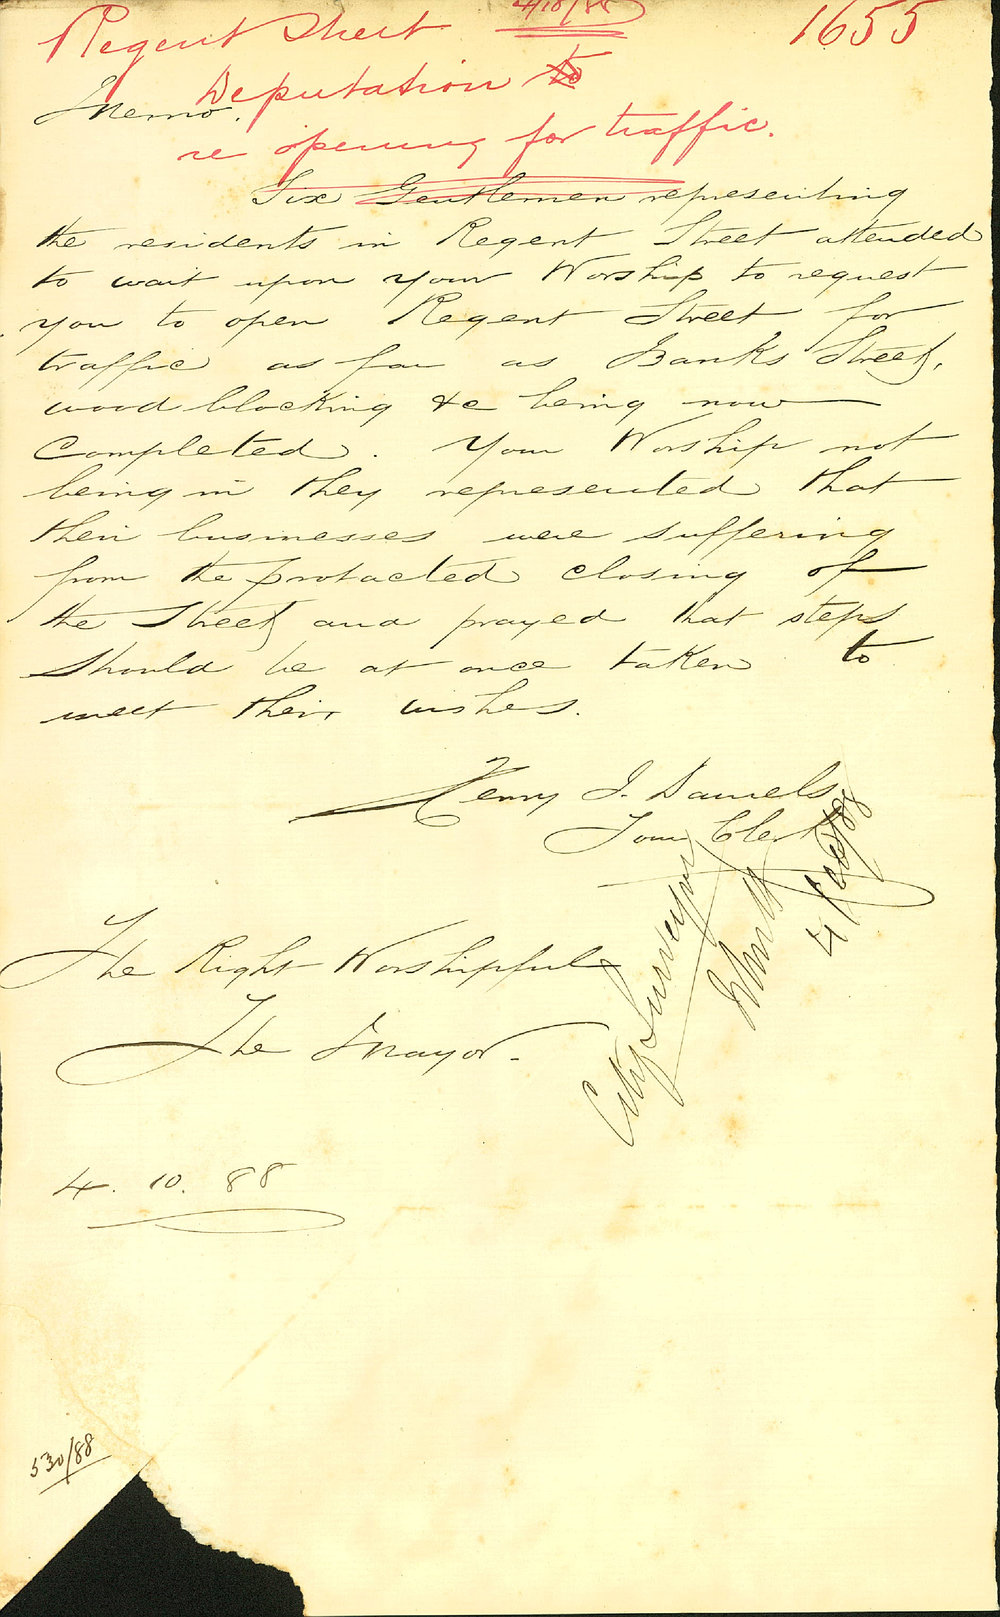 Regent Street 4/10/88 1655
Deputation to
Memo.
re opening for traffic.
Six Gentlemen representing
the residents in Regent Street attended
to wait upon your Worship to request
you to open Regent Street for
traffic as far as Banks Street,
wood blocking &c being now
completed. Your Worship not
being in they represented that
their businesses were suffering
from the protacted closing of
the Street and prayed that steps
should be at once taken to
meet their wishes.
Henry J. Daniels
Town Clerk
City Surveyor
4 Oct/88
The Right Worshipful
The Mayor.
4. 10. 88
530/88